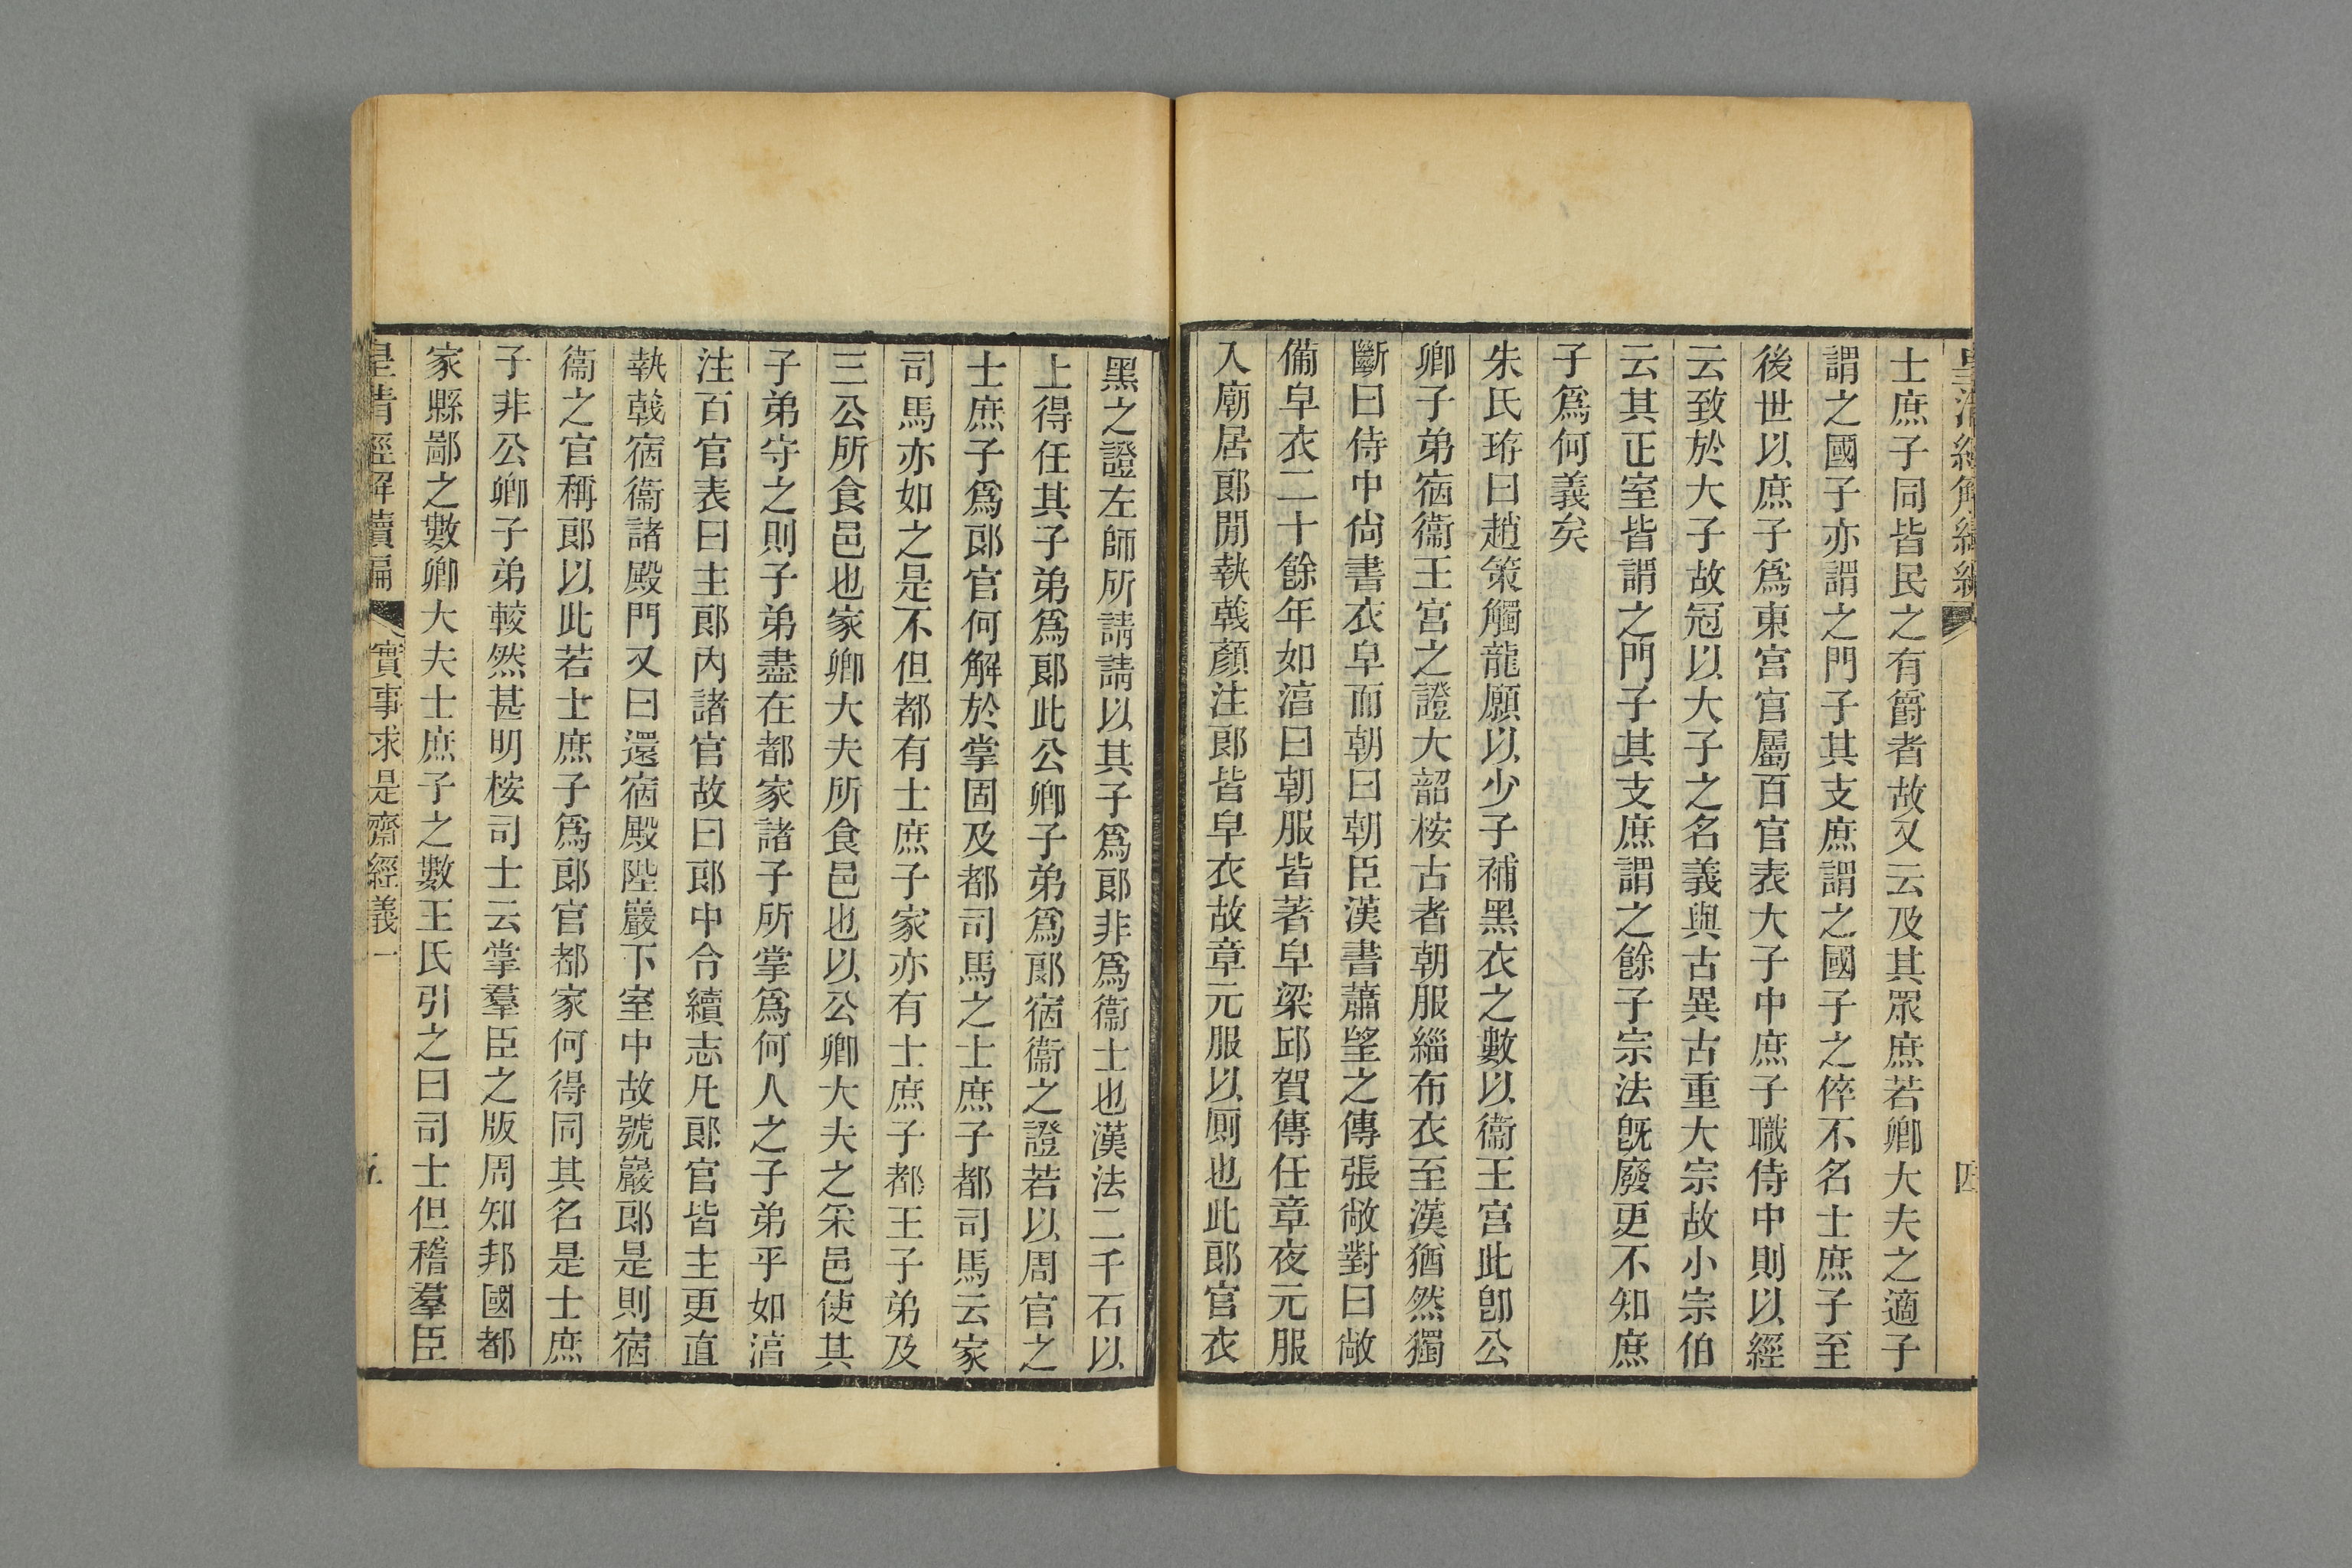 皇清經解續編
四
士庶子同皆民之有爵者故又云及其眾庶若卿大夫之適子
謂之國子亦謂之門子其支庶謂之國子之倅不名士庶子至
後世以庶子爲東宮官屬百官表大子中庶子職侍中則以經
云致於大子故冠以大子之名義與古異古重大宗故小宗伯
云其正室皆謂之門子其支庶謂之餘子宗法旣廢更不知庶
子爲何義矣
朱氏珔曰趙策觸龍願以少子補黑衣之數以衞王宮此卽公
卿子弟宿衞王宮之證大韶桉古者朝服緇布衣至漢猶然獨
斷曰侍中尙書衣皁而朝曰朝臣漢書蕭望之傳張敞對曰敞
備皁衣二十餘年如淳曰朝服皆著皁梁邱賀傳任章夜元服
入廟居郎閒執戟顏注郎皆皁衣故章元服以厠也此郎官衣
黑之證左師所請請以其子爲郎非爲衞士也漢法二千石以
上得任其子弟爲郎此公卿子弟爲郎宿衞之證若以周官之
士庶子爲郎官何解於掌固及都司馬之士庶子都司馬云家
司馬亦如之是不但都有士庶子家亦有士庶子都王子弟及
三公所食邑也家卿大夫所食邑也以公卿大夫之采邑使其
子弟守之則子弟盡在都家諸子所掌爲何人之子弟乎如淳
注百官表曰主郎內諸官故曰郎中令續志凡郎官皆主更直
執戟宿衞諸殿門又曰還宿殿陛巖下室中故號巖郎是則宿
衞之官稱郎以此若士庶子爲郎官都家何得同其名是士庶
子非公卿子弟較然甚明桉司士云掌羣臣之版周知邦國都
家縣鄙之數卿大夫士庶子之數王氏引之曰司士但稽羣臣
皇清經解續編
實事求是齋經義一
五